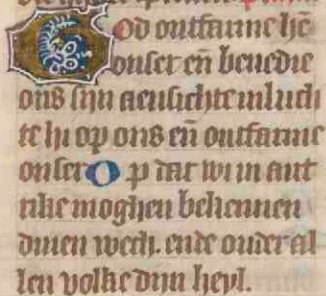 God ontfarme hē
onser en̄ benedie
ons sijn aensichte inluch
te hi op ons en̄ ontfarme
onser Op dat wi in aert
rike moghen bekennen
dinen wech. ende onder al
len volke dijn heyl.